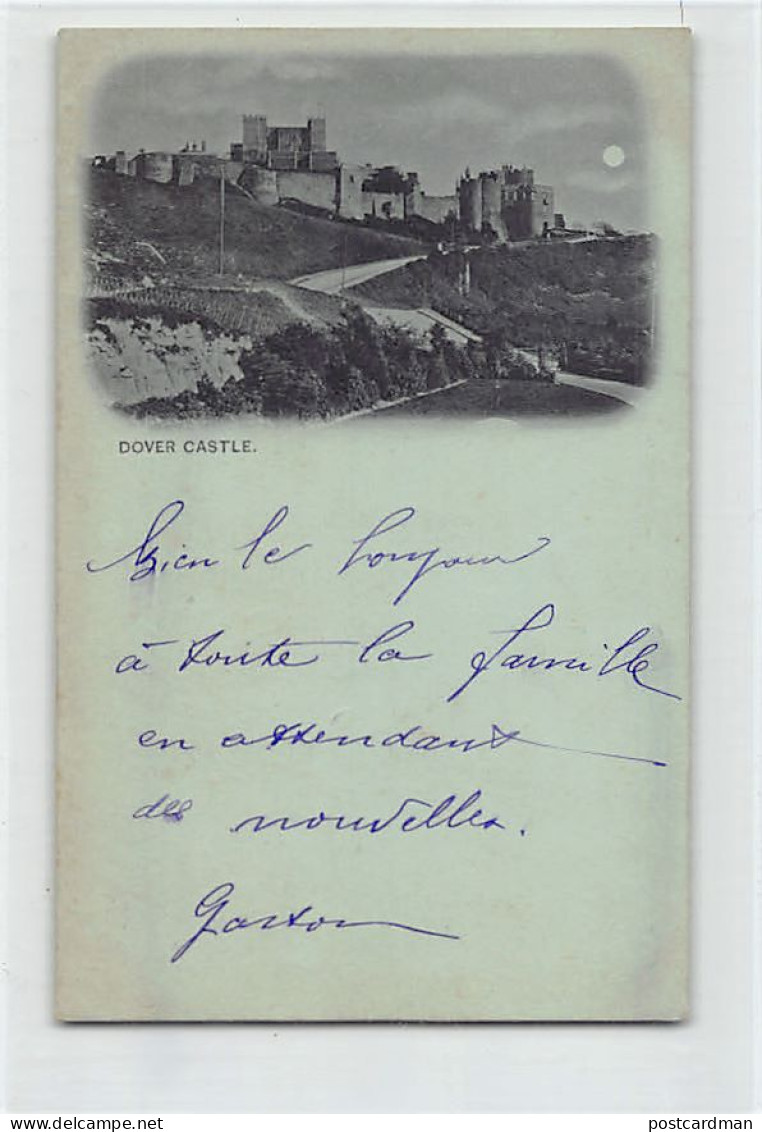 DOVER CASTLE.
Bien le bonjour
à toute la famille
en attendant
des nouvelles.
Gaston
postcardman